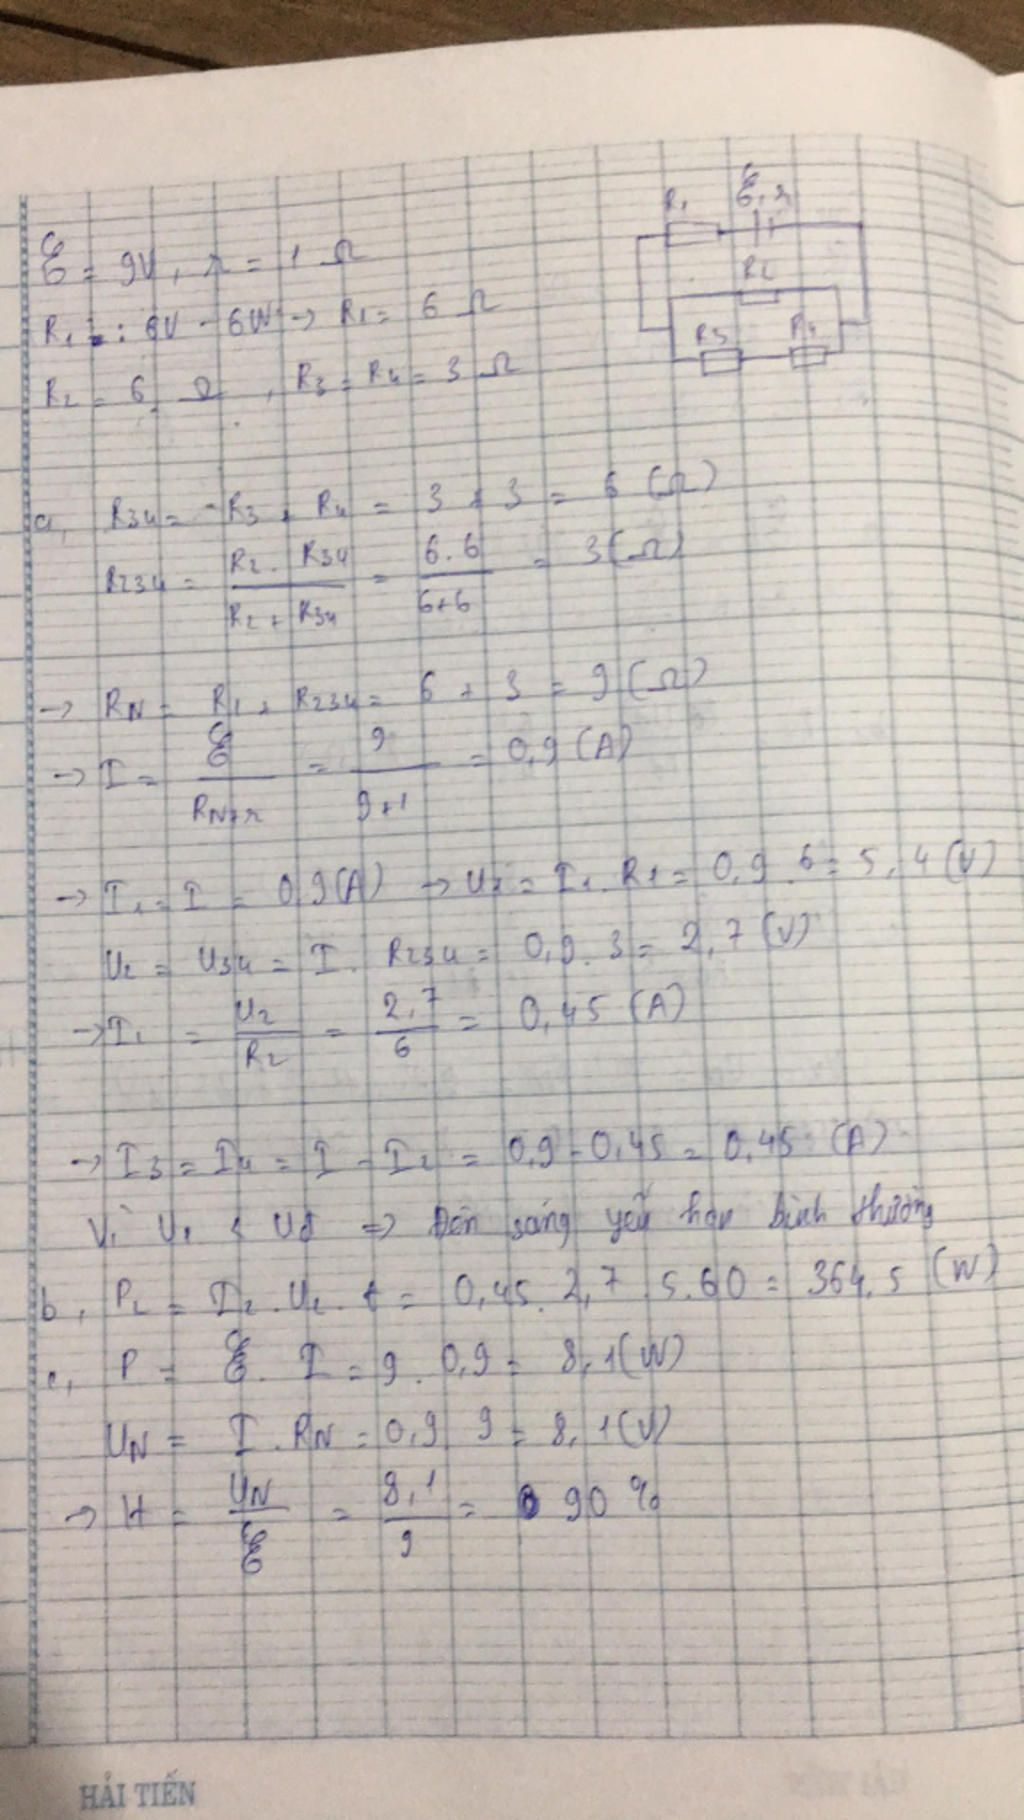 R₁ ℰ, r
ℰ = 9V, r = 1 Ω
R₂
R₁ : 6V - 6W → R₁ = 6 Ω
R₃ R₄
R₂ = 6 Ω, R₃ = R₄ = 3 Ω
a, R₃₄ = R₃ + R₄ = 3 + 3 = 6 (Ω)
R₂₃₄ = R₂ . R₃₄ / R₂ + R₃₄ = 6.6 / 6+6 = 3 (Ω)
→ R_N = R₁ + R₂₃₄ = 6 + 3 = 9 (Ω)
→ I = ℰ / R_N + r = 9 / 9+1 = 0,9 (A)
→ I₁ = I = 0,9 (A) → U₁ = I₁ . R₁ = 0,9 . 6 = 5,4 (V)
U₂ = U₃₄ = I . R₂₃₄ = 0,9 . 3 = 2,7 (V)
→ I₂ = U₂ / R₂ = 2,7 / 6 = 0,45 (A)
→ I₃ = I₄ = I - I₂ = 0,9 - 0,45 = 0,45 (A)
Vì U₁ < Uđ ⇒ Đèn sáng yếu hơn bình thường
b, P₂ = I₂ . U₂ . t = 0,45 . 2,7 . 5.60 = 364,5 (W)
c, P = ℰ . I = 9 . 0,9 = 8,1 (W)
U_N = I . R_N = 0,9 . 9 = 8,1 (V)
→ H = U_N / ℰ = 8,1 / 9 = 90 %
HẢI TIẾN